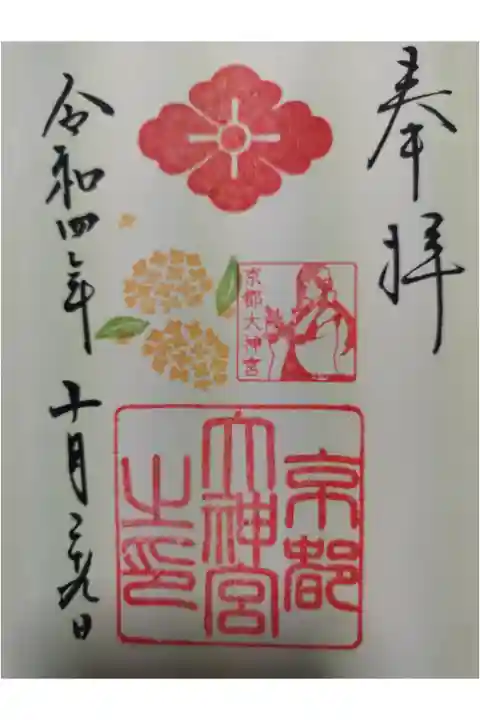 奉拝
京都大神宮
京都
大神宮
之印
令和四年 十月二十九日